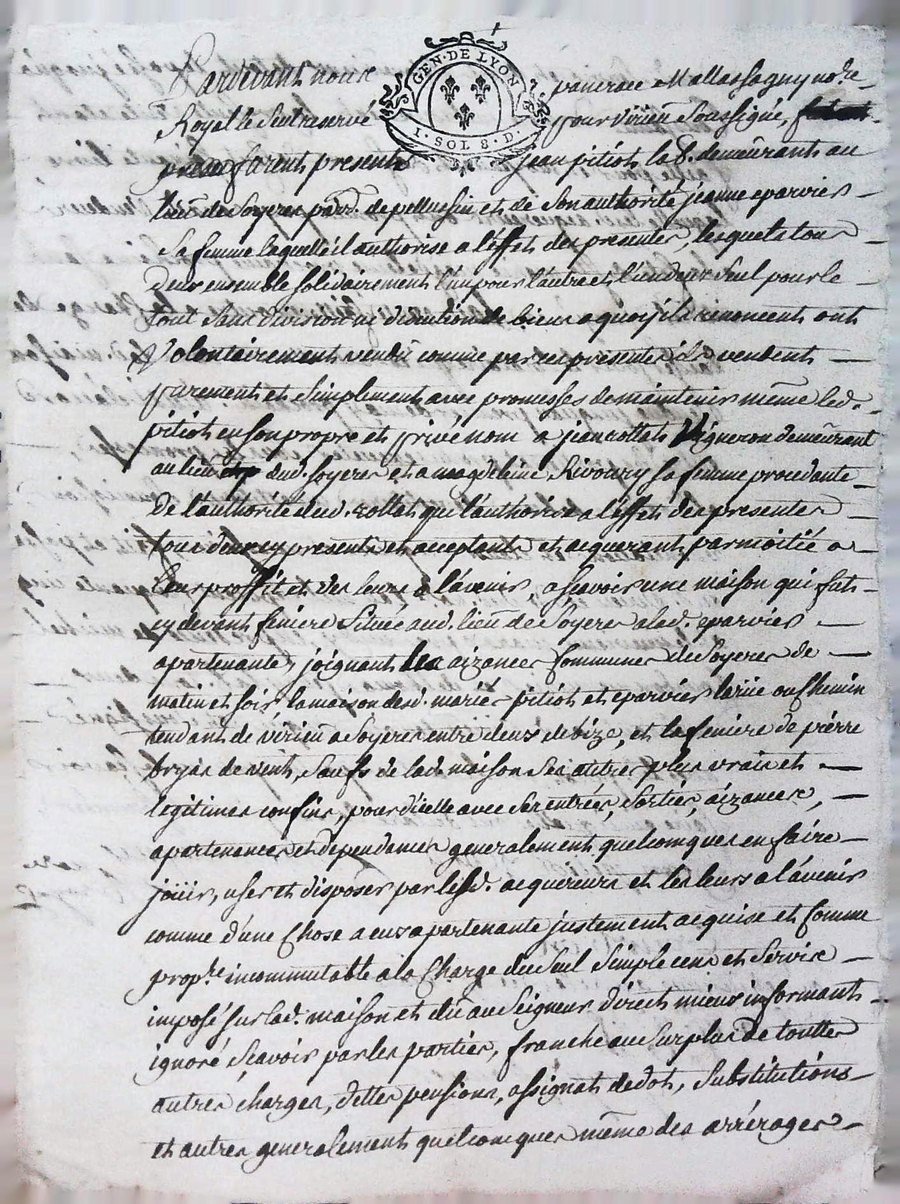 GEN·DE LYON
1·SOL 8·D·
Pardevant nous pancrace Mallassagny no.re
Royal le seul reservé pour virieu soussigné,
furent presents jean pitiot lab.r demeurant au
lieu de Soyeres par.se de pellussin et de son authorité jeanne eparvier
Sa femme laquelle il authorise a l'effet des presentes, lesquels tous
Deux ensemble solidairement l'un pour l'autre et l'un deux seul pour le
tout sans division ni discution de biens a quoy ils renoncent ont
Volontairement vendu comme par ces presentes ils vendent
purement et simplement avec promesses de maintenir même led.
pitiot en son propre et privé nom a jean collet Vigneron demeurant
au lieu dud. Soyeres et a magdeleine Rivoury sa femme procedante
De l'authorité dud. collet qui l'authorise a l'effet des presentes
tous deux cy presents et acceptants et acquerant par moitié a
leur proffit et des leurs a l'avenir, a sçavoir une maison qui fut
cy devant feniere située aud. lieu de Soyeres a lad. eparvier
apartenante, joignant les aizances Communes de Soyeres de
matin et soir la maison desd. mariés pitiot et eparvier la rüe ou Chemin
tendant de virieu a Soyeres entre deux de bize, et la feniere de pierre
de vent, saufs de lad. maison ses autres plus vrais et
legitimes confins, pour d'icelle avec ses entrées, sorties, aizances,
apartenances et dependances generalement quelcomques en faire
joüir, user et disposer par lesd. acquereurs et les leurs a l'avenir
comme d'une Chose a eux apartenante justement acquise et Comme
prop.re incommutable a la Charge du seul simple cens et servis
imposé sur lad. maison et dû au Seigneur direct mieux informant
ignoré sçavoir par les parties, franche au surplus de touttes
autres charges, dettes pensions, assignat de dot, substitutions
et autres generalement quelcomques même des arrérages